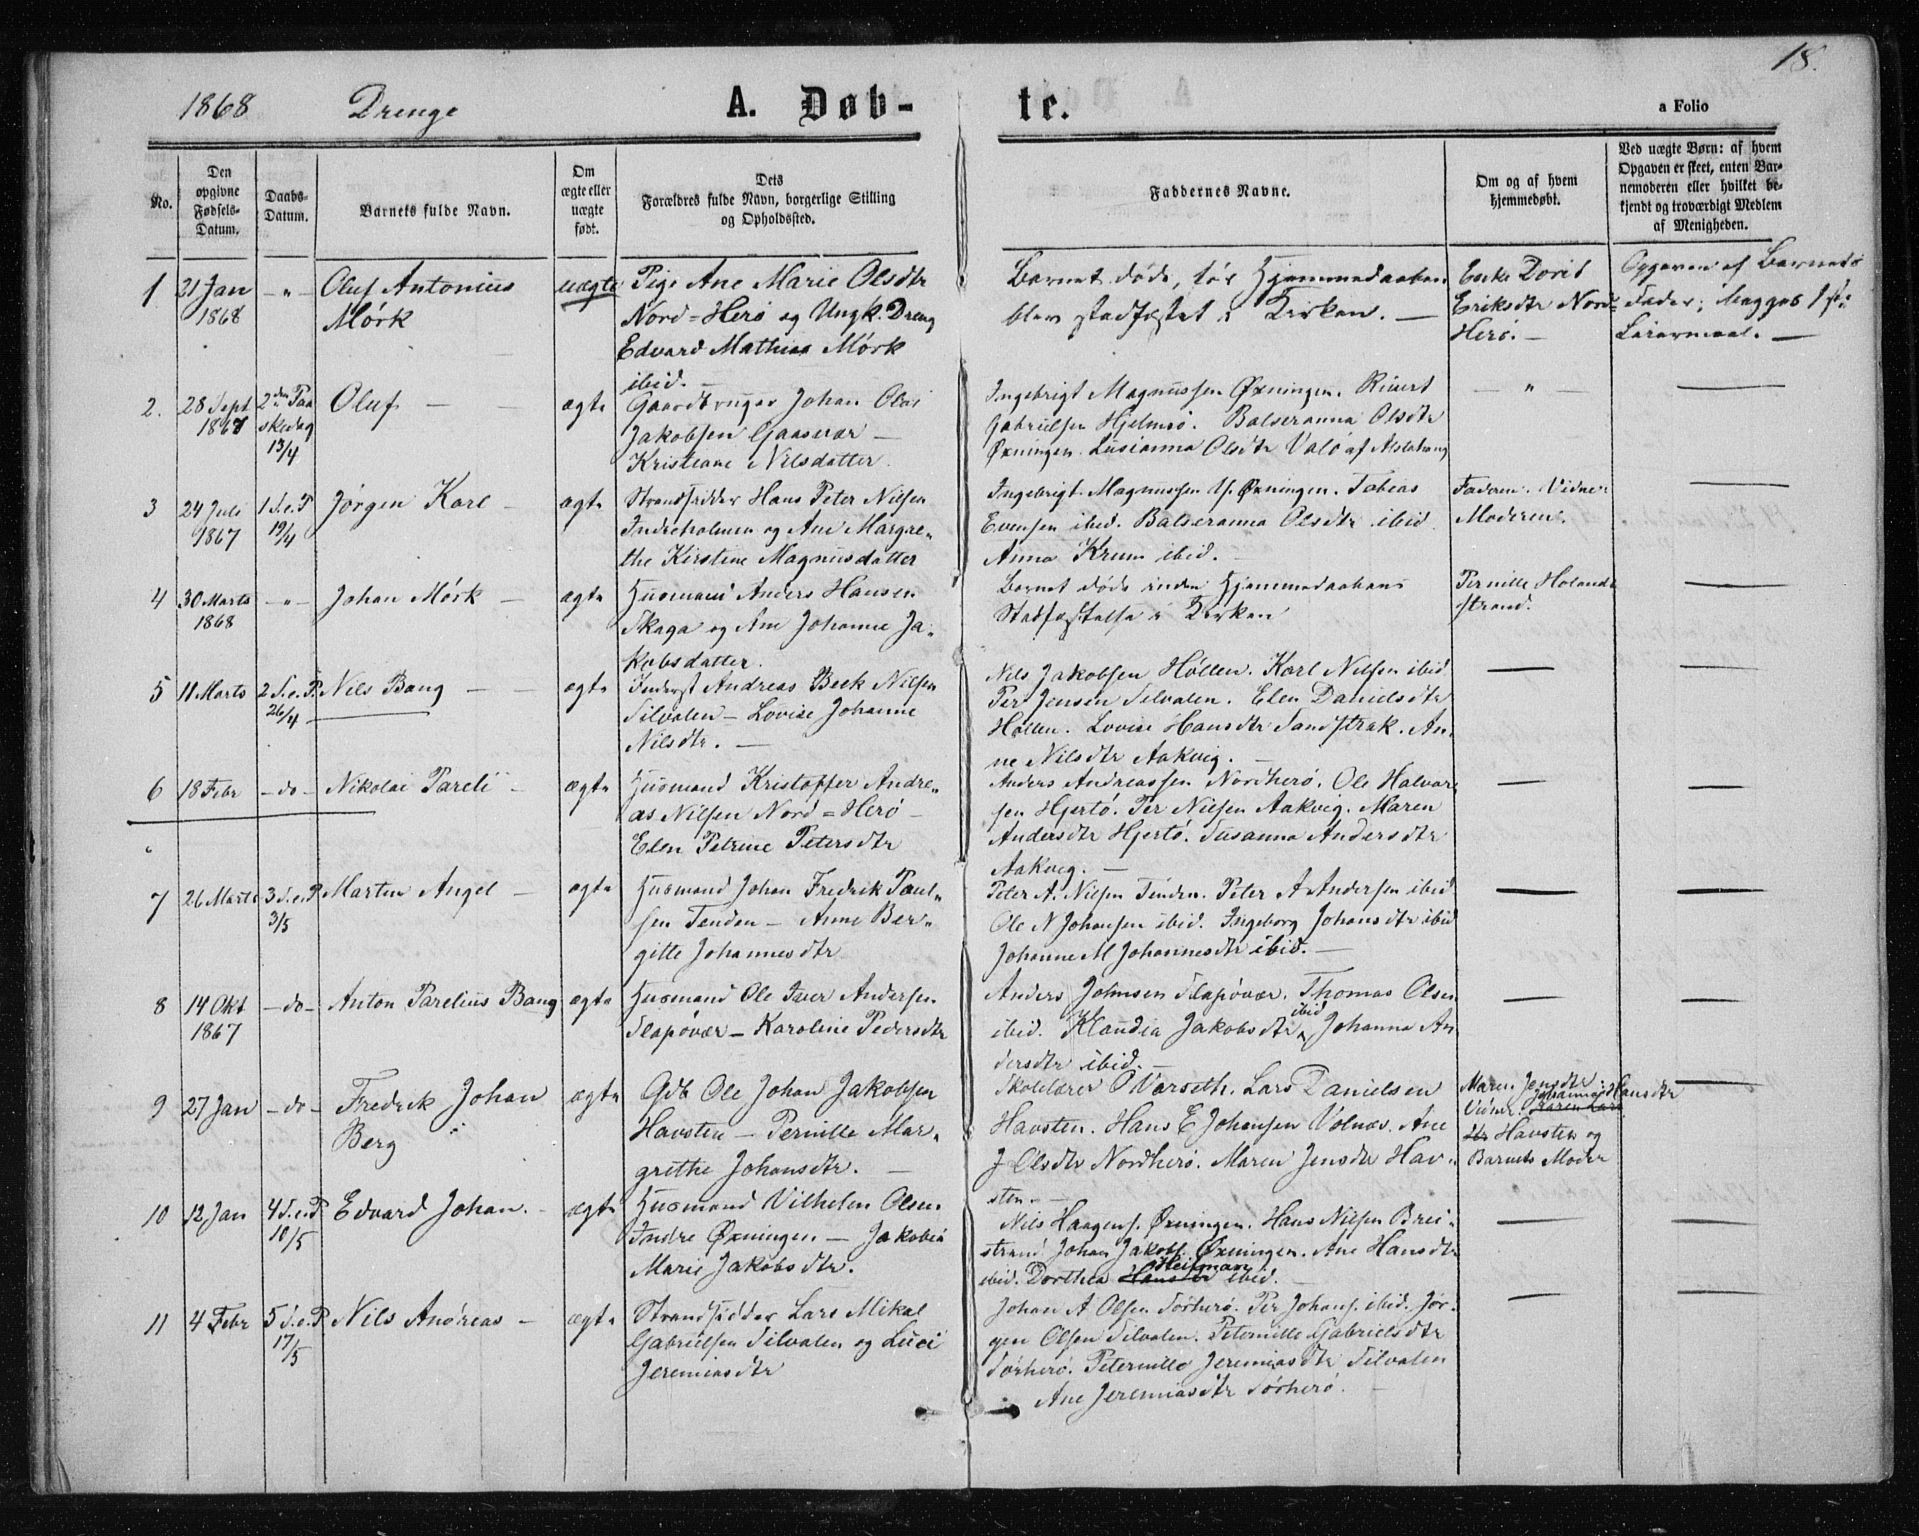 18.
1868 Drenge A. Døb- te. a Folio
No.
Den opgivne Fødsels-Datum.
Daabs-Datum.
Barnets fulde Navn.
Om ægte eller uægte født.
Dets Forældres fulde Navn, borgerlige Stilling og Opholdssted.
Faddernes Navne.
Om og af hvem hjemmedøbt.
Ved uægte Børn: af hvem Opgaven er skeet, enten Barnemoderen eller hvilket bekjendt og troværdigt Medlem af Menigheden.
1 21 Jan 1868 - " - Oluf Antonius Mørk uægte
Pige Ane Marie Olsdtr
Nord=Herö og Ungk. Dreng
Edvard Mathias Mörk
ibid. -
Barnet döde, för Hjemmedaaben
blev stadfæstet i Kirken. -
Dorit
Eriksdtr Nord=
Herö. -
Opgaven af Barnets
Fader;
2. 28 Sept 1867 2den Paaskedag 13/4 Oluf - ægte
Gaardbruger Johan Olai
Jakobsen Gaasvær -
Kristiane Nilsdatter.
Ingebrigt Magnussen Øxningen. Rivert
Gabrielsen Hjelmsö. Balseranna Olsdtr
Øxningen. Lusianna Olsdtr Valö af Alstahoug
- " -
3 24 Juli 1867 1 S.e.P 19/4 Jörgen Karl - ægte
Strandsidder Hans Peter Nilsen
Indreholmen og Ane Margre-
the Kirstine Magnusdatter
Ingebrigt Magnussen Y. Øxningen. Tobias
Evensen ibid. Balseranna Olsdtr ibid.
Anna Krum ibid. -
Faderen. Vidne:
Moderen.
4 30 Marts 1868 - " - Johan Mörk - ægte
Husmand Anders Hansen
Skaga og Ane Johanne Ja-
kobsdatter.
Barnet döde inden Hjemmedaabens
Stadfæstelse i Kirken
Pernille Holands
strand.
5 11 Marts 2 S.e.P. 26/4 Nils Bang - - ægte
Inderst Andreas Beck Nilsen
Silvalen - Lovise Johanne
Nilsdtr. -
Nils Jakobsen Höllen. Karl Nilsen ibid
Per Jensen Silvalen. Elen Danielsdtr
Höllen. Lovise Hansdtr Sandstrak. An-
ne Nilsdtr Aakvig. -
6 18 Febr - do - Nikolai Pareli - ægte
Husmand Kristoffer Andre-
as Nilsen Nord=Herö -
Elen Petrine Petersdtr
Anders Andreassen Nordherö. Ole Halvor-
sen Hjertö. Per Nilsen Aakvig. Maren
Andersdtr Hjertö. Susanna Andersdtr
Aakvig. -
7 26 Marts 3 S.e.P 3/5 Martin Angel - ægte
Husmand Johan Fredrik Paul-
sen Tenden - Anne Ber-
gitte Johannesdtr
Peter A. Nilsen Tinden. Peter A Andersen ibid
Ole N Johansen ibid. Ingeborg Johansdtr ibid
Johanne M Johannesdtr ibid. -
8 14 Okt 1867 - do - Anton Parelius Bang ægte
Husmand Ole Iver Andersen
Slapövær - Karoline Pedersdtr
Anders Johnsen Slapövær. Thomas Olsen
ibid. Klaudia Jakobsdtr ibid Johanna An
dersdtr ibid. -
9 27 Jan - do - Fredrik Johan Berg ægte
Gdb Ole Johan Jakobsen
Havsten - Pernille Mar-
grethe Johansdtr. -
Skolelærer O Varseth. Lars Danielsen
Havsten. Hans E Johansen Volnes. Ane
J Olsdtr Nordherö. Maren Jensdtr Hav-
sten. -
Maren Jensdtr.
Vidner. Johanna Hansdtr
Havsten og
Barnets Moder
10 12 Jan 4 S.e.P 10/5 Edvard Johan. - ægte
Husmand Vilhelm Olsen
Indre Øxningen - Jakobia
Marie Jakobsdtr.
Nils Haagens. Øxningen. Hans Nilsen Brei-
strand Johan Jakobs. Øxningen. Ane Hansdtr
ibid. Dorthea Heitman ibid. -
11 4 Febr 5 S.e.P 17/5 Nils Andreas - ægte
Strandsidder Lars Mikal
Gabrielsen Silvalen og Luci
Jeremiasdtr
Johan A Olsen Sörherö. Per Johans. ibid. Jör-
gen Olsen Silvalen. Peternille Gabrielsdtr
Sörherö. Peternille Jeremiasdtr Silvalen
Ane Jeremiasdtr Sörherö. -